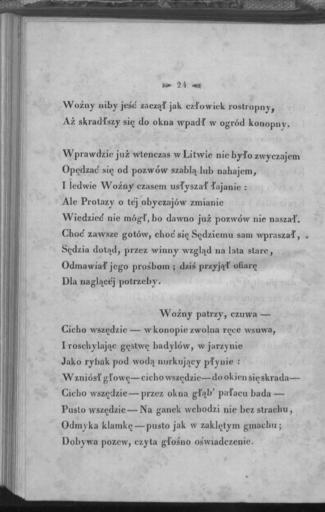 24
Woźny niby jeść zaczął jak człowiek rostropny,
Aż skradłszy się do okna wpadł w ogród konopny.
Wprawdzie już wtenczas w Litwie nie było zwyczajem
Opędzać się od pozwów szablą lub nahajem,
I ledwie Woźny czasem usłyszał łajanie :
Ale Protazy o téj obyczajów zmianie
Wiedzieć nie mógł, bo dawno już pozwów nie naszał.
Choć zawsze gotów, choć się Sędziemu sam wpraszał,
Sędzia dotąd, przez winny wzgląd na lata stare,
Odmawiał jego prośbom ; dziś przyjął ofiarę
Dla naglącéj potrzeby.
Woźny patrzy, czuwa —
Cicho wszędzie — w konopie zwolna ręce wsuwa,
I roschylając gęstwę badylów, w jarzynie
Jako rybak pod wodą nurkujący płynie :
Wzniósł głowę — cicho wszędzie — do okien się skrada —
Cicho wszędzie — przez okna głąb' pałacu bada —
Pusto wszędzie — Na ganek wchodzi nie bez strachu,
Odmyka klamkę — pusto jak w zaklętym gmachu ;
Dobywa pozew, czyta głośno oświadczenie.